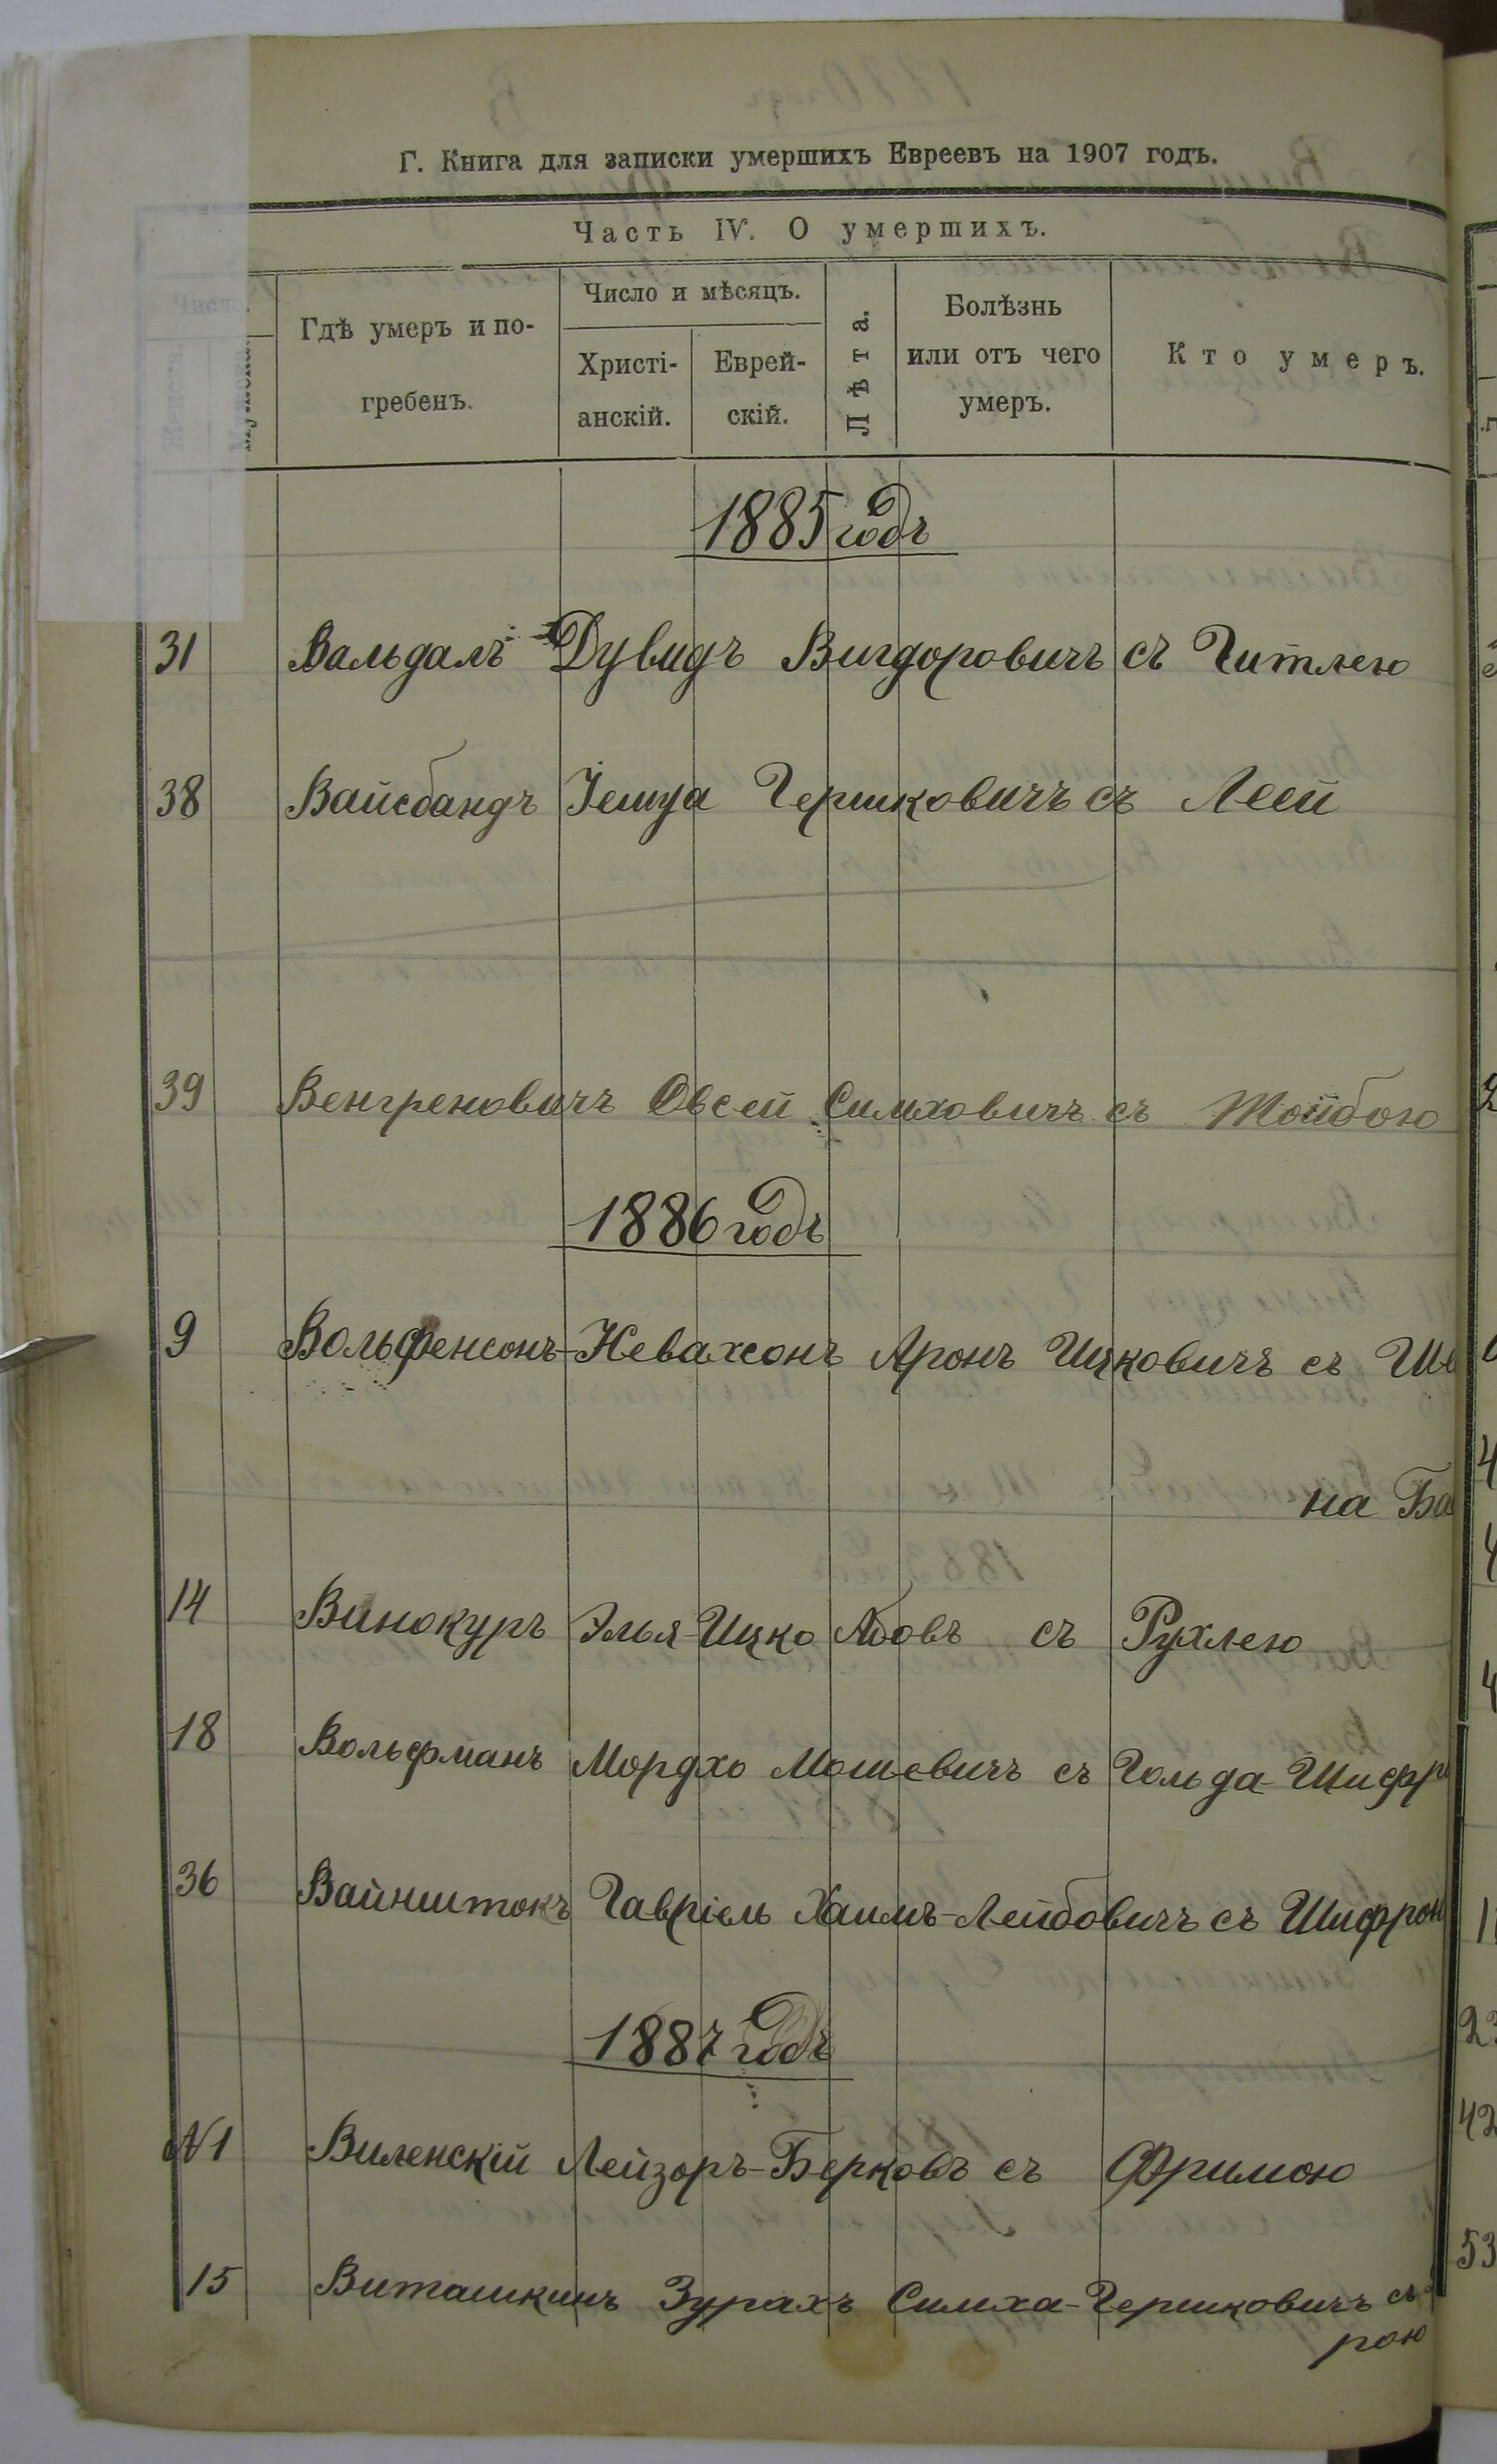 Г. Книга для записки умершихъ Евреевъ на 1907 годъ.
Часть IV. О умершихъ.
Число.
Женска
Мужска.
Гдѣ умеръ и по-
гребенъ.
Число и мѣсяцъ.
Христі-
анскій.
Еврей-
скій.
Лѣта.
Болѣзнь
или отъ чего
умеръ.
Кто умеръ.
1885 годъ
31 Вальдалъ Дувидъ Вигдоровичъ съ Гитлею
38 Вайсбандъ Іешуа Гершковичъ съ Леей
39 Венгреновичъ Овсей Симховичъ съ Тойбою
1886 годъ
9 Вольфенсонъ-Невахсонъ Аронъ Ицковичъ съ Ше
на Ба
14 Винокуръ Элья-Ицко Абовъ съ Рухлею
18 Вольфманъ Мордхо Мошевичъ съ Гольда-Шифр
36 Вайнштокъ Гавріель Хаимъ-Лейбовичъ съ Шифрою
1887 годъ
№1 Виленскій Лейзоръ-Берковъ съ Фримою
15 Виташкинъ Зурахъ Симха-Гершковичъ съ
рою